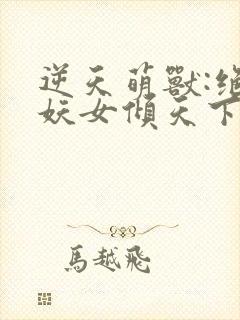 逆天萌獸:絕
妖女傾天下
馬越飛